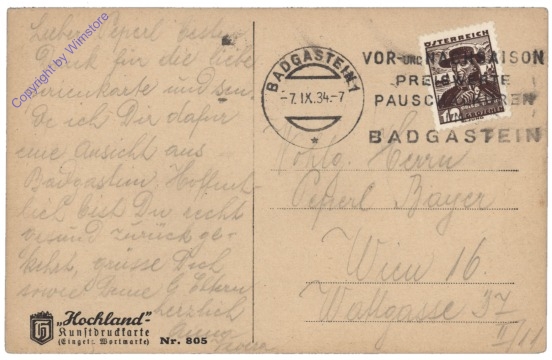 Lieber Peperl besten
Dank für die liebe
Ferienkarte und sen-
de ich Dir dafür
eine Ansicht aus
Badgastein. Hoffent-
lich bist Du recht
gesund zurück ge-
kehrt, grüsse Dich
sowie Deine G. Eltern
herzlich
Copyright by Wimstore
"Hochland"-
Kunstdruckkarte
(Einget. Wortmarke) Nr. 805
BADGASTEIN 1
-7. IX. 34.-7
*
ÖSTERREICH
VOR- UND NACHSAISON
PREISWERTE
BADGASTEIN
Wohlg. Herrn
Peperl Bayer
Wien 16.
Wattgasse 37
II/11